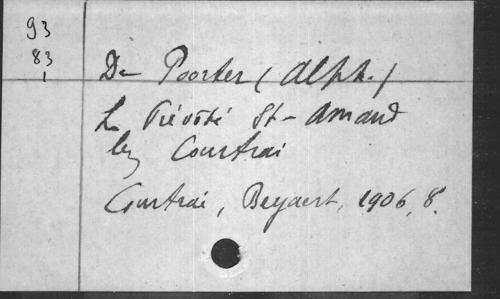 93
83
1
De Poorter (Alph.)
La Prévôté St-Amand
lez Courtrai
Courtrai, Beyaert, 1906, 8°.